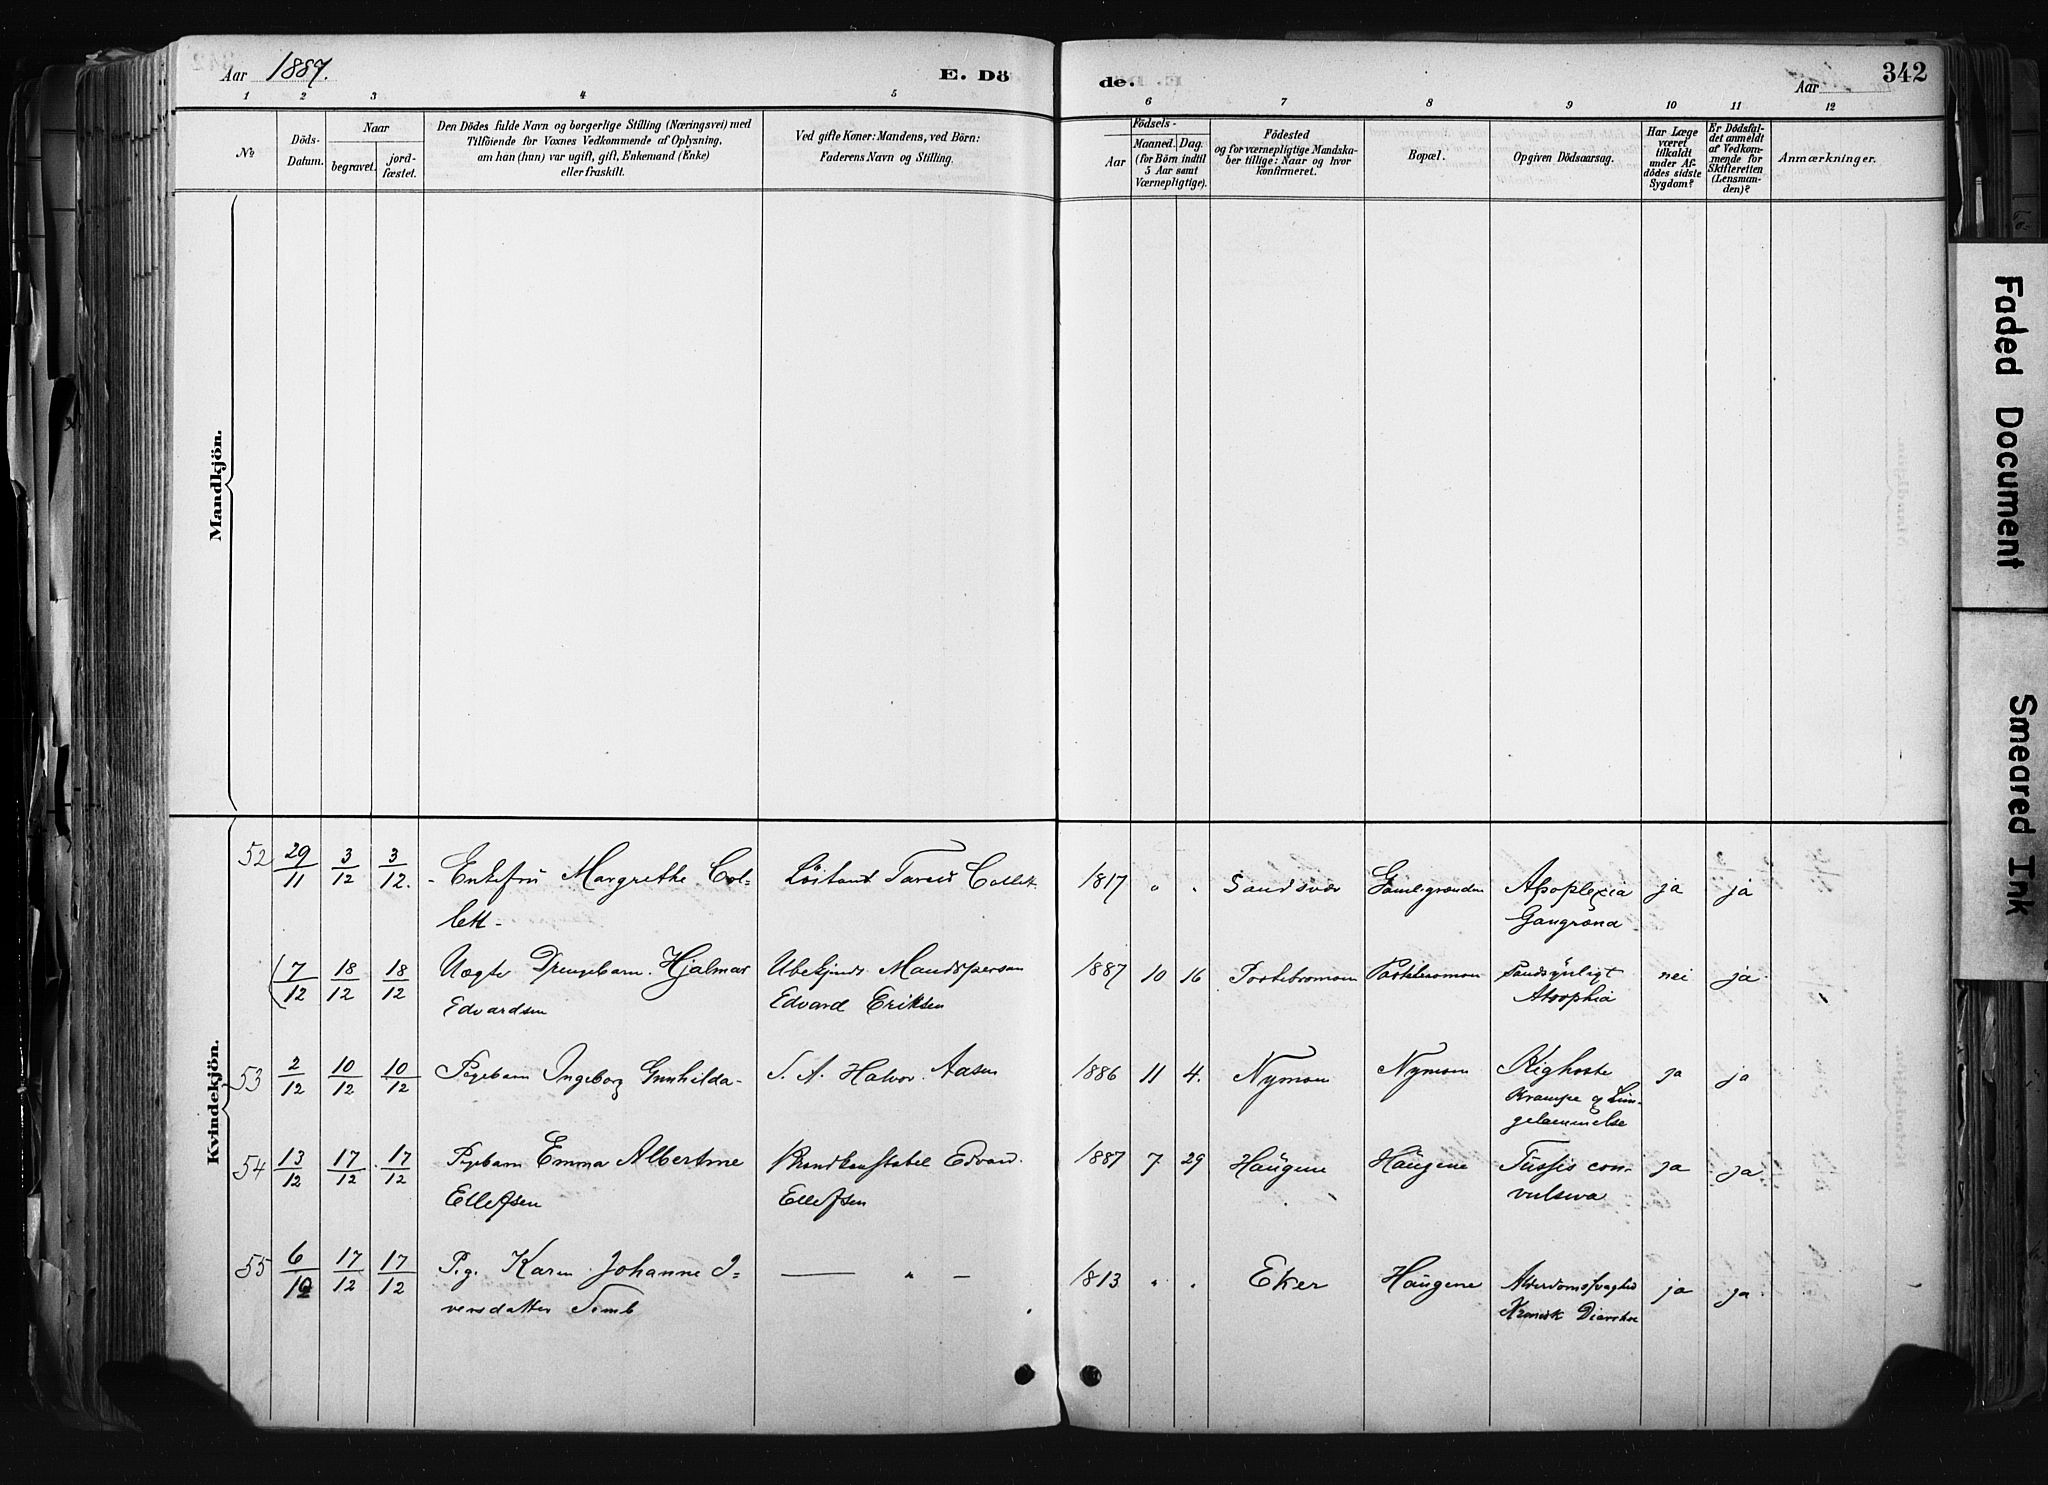 Aar 1887.
E. Dö
de.
Aar
342
1 2 3 4 5
6 7 8 9 10 11 12
No
Döds-
Datum.
Naar
begravet.
jord-
fæstet.
Den Dödes fulde Navn og borgerlige Stilling (Næringsvei) med
Tilföiende for Voxnes Vedkommende af Oplysning,
om han (hun) var ugift, gift, Enkemand (Enke)
eller fraskilt.
Ved gifte Koner: Mandens, ved Börn:
Faderens Navn og Stilling.
Födsels-
Aar
Maaned. Dag.
(for Börn indtil
5 Aar samt
Værnepligtige).
Födested
og for værnepligtige Mandska-
ber tillige: Naar og hvor
konfirmeret.
Bopæl.
Opgiven Dödsaarsag.
Har Læge
været
tilkaldt
under Af-
dödes sidste
Sygdom?
Er Dödsfal-
det anmeldt
af Vedkom-
mende for
Skifteretten
(Lensman-
den)?
Anmærkninger.
Mandkjön.
Kvindekjön.
52 29/11 3/12 3/12. Enkefru Margrethe Col- Collett 1817 " " Sandsvær Apoplexia ja ja
lett Gangræna
7/12 18/12 18/12 Uægte Drengebarn Hjalmar Ubekjendt Mandsperson 1887 10 16 Sandsynligt nei ja
Edvardsen Edvard Eriksen Atrophia
53 2/12 10/12 10/12 Pigebarn Ingeborg Gunhilda S. A. Halvor Aasen 1886 11 4. Nymoen Nymoen Kighoste ja ja
Krampe og Lun-
gebetændelse
54 13/12 17/12 17/12 Pigebarn Emma Albertine Brandkonstabel Edvard 1887 7 29 Haugene Haugene Tussis con- ja ja
Ellefsen Ellefsen vulsiva
55 6/12 17/12 17/12 P.g. Karen Johanne I- — " — 1813 " " Eker Haugene Alderdomssvaghed ja ja
versdatter Kronisk Diarrhoe
Faded Document
Smeared Ink